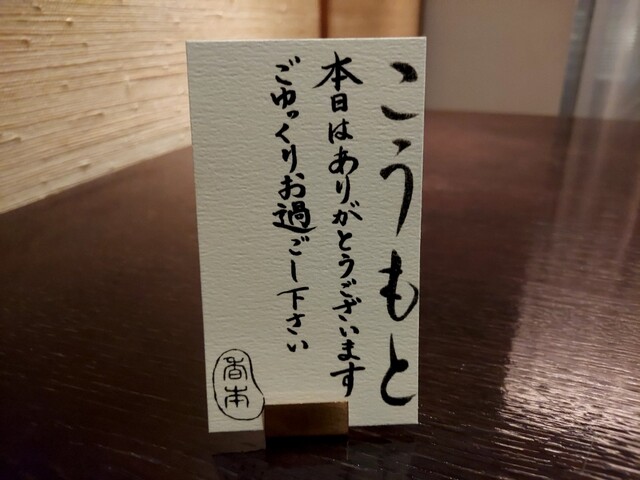 こうもと
本日はありがとうございます
ごゆっくりお過ごし下さい
香本